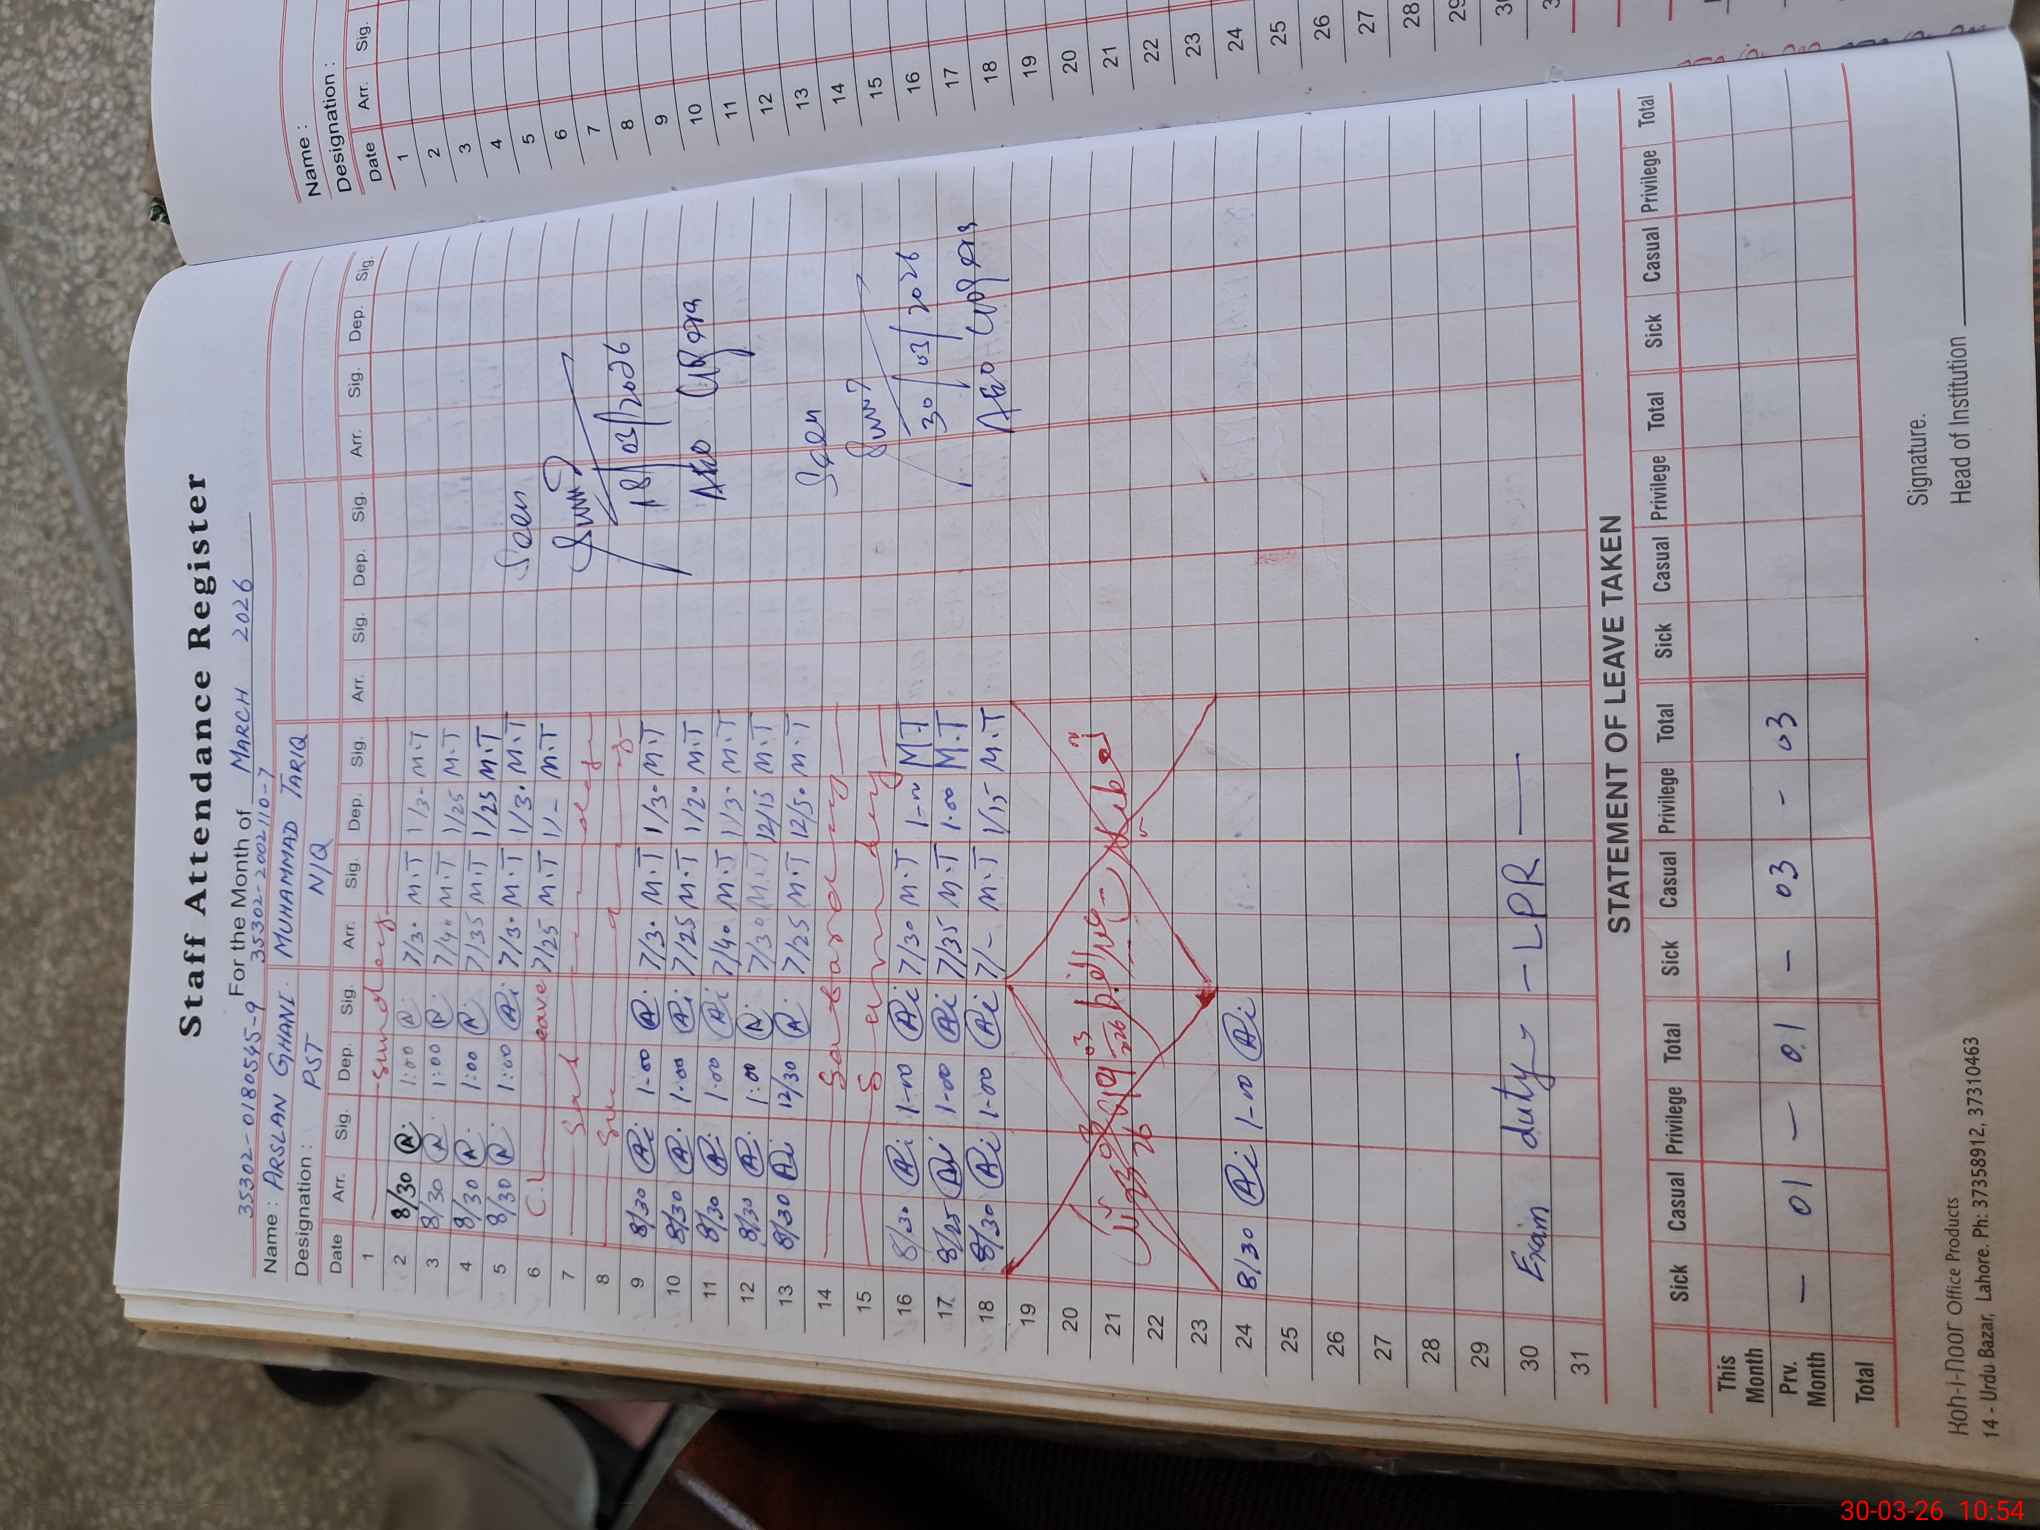 Staff Attendance Register
For the Month of MARCH 2026
35302-0180545-9 35302-2002110-7
Name : ARSLAN GHANI. MUHAMMAD TARIQ
Designation : PST N/Q
Date Arr. Sig. Dep. Sig. Arr. Sig. Dep. Sig. Arr. Sig. Dep. Sig. Arr. Sig. Dep. Sig.
1 Sunday
2 8/30 1:00 7/30 M.T 1/30 M.T
3 8/30 1:00 7/40 M.T 1/25 M.T
4 8/30 1:00 7/35 M.T 1/25 M.T
5 8/30 1:00 7/30 M.T 1/30 M.T
6 C.L leave 7/25 M.T 1/- M.T
7
8
9 8/30 1-00 7/30 M.T 1/30 M.T
10 8/30 1:00 7/25 M.T 1/20 M.T
11 8/30 1:00 7/40 M.T 1/30 M.T
12 8/30 1:00 7/30 M.T 12/15 M.T
13 8/30 12/30 7/25 M.T 12/50 M.T
14
15
16 8/30 1-00 7/30 M.T M.T
17 8/25 1-00 7/35 M.T 1-00 M.T
18 8/30 1-00 7/- M.T 1/15 M.T
19
20
21
22
23
24 8/30 1-00
25
26
27
28
29
30 Exam duty - LPR -
31
Seen
18/03/2026
AEO
Seen
30/03/2026
AEO
STATEMENT OF LEAVE TAKEN
Sick Casual Privilege Total Sick Casual Privilege Total Sick Casual Privilege Total Sick Casual Privilege Total
This Month
Prv. Month - 01 - 01 - 03 - 03
Total
Signature.
Head of Institution
Koh-i-Noor Office Products
14 - Urdu Bazar, Lahore. Ph: 37358912, 37310463
Name :
Designation :
Date Arr. Sig.
1
2
3
4
5
6
7
8
9
10
11
12
13
14
15
16
17
18
19
20
21
22
23
24
25
26
27
28
29
30-03-26 10:54